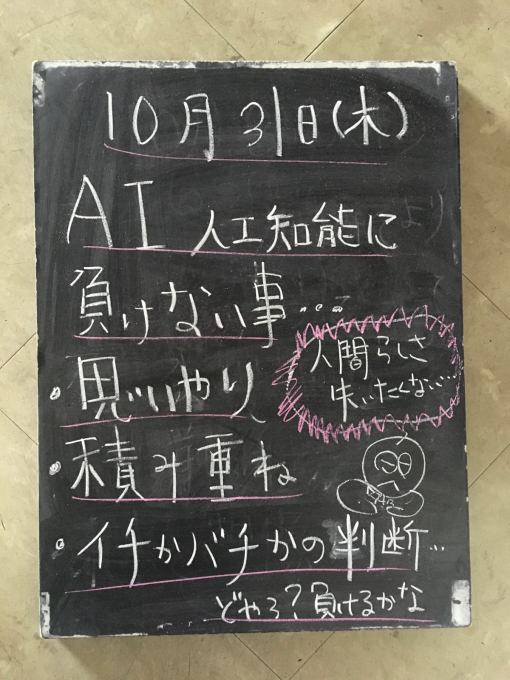 10月31日(木)
AI 人工知能に
負けない事...
・思いやり
人間らしさ
失いたくない...
・積み重ね
・イチかバチかの判断...
どやろ?負けるかな